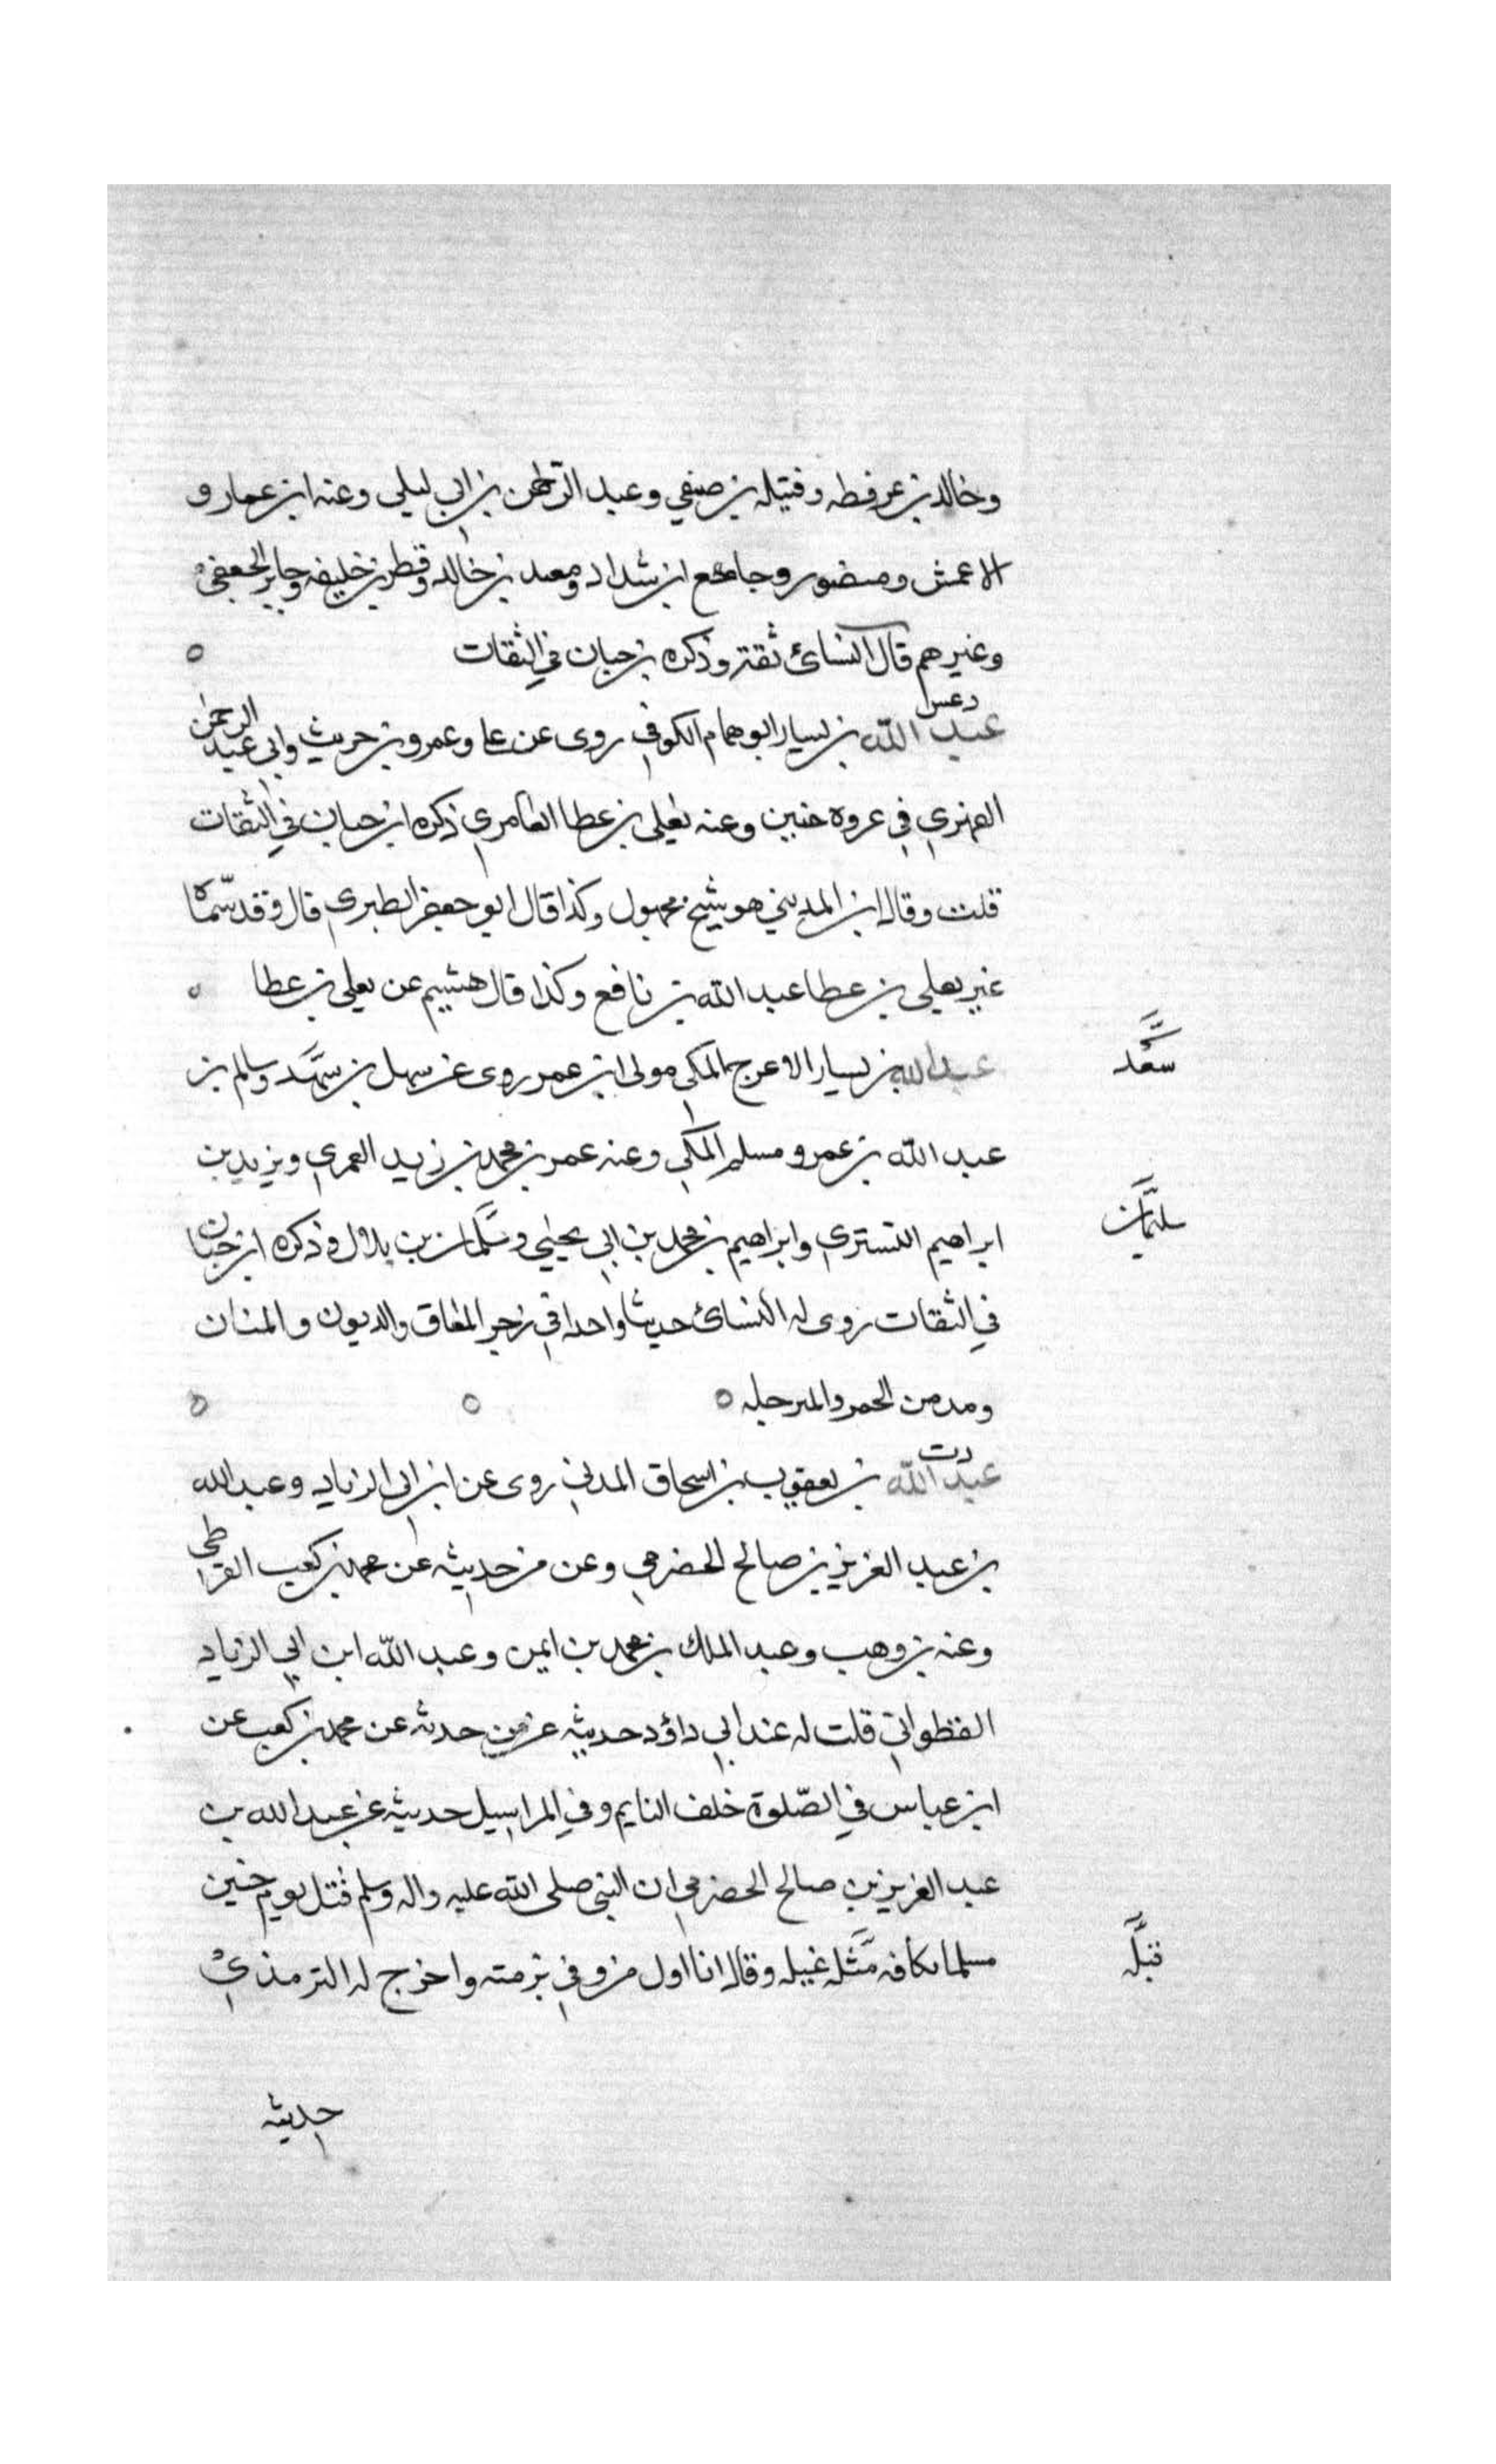 وخالد بن عرفطه وقتيله بن صيفي وعبد الرحمن بن ابي ليلى وعنه ابن عمار و
الاعمش ومنصور وجامع ابن شداد ومعبد بن خالد وقطر بن خليفه وجابر الجعفي
وغيرهم قال النسائ ثقة وذكره بن حبان في الثقات
د عس
عبد الله بن يسار ابو همام الكوفي روى عن علي وعمرو بن حريث وابي عبد الرحمن
الفهري في غزوه حنين وعنه يعلى بن عطا العامري ذكره ابن حبان في الثقات
قلت وقال ابن المديني هو شيخ مجهول وكذا قال ابو جعفر الطبري قال وقد سماه
غير يعلى بن عطا عبد الله بن نافع وكذا قال هشيم عن يعلى بن عطا
عبد الله بن يسار الاعرج المكي مولى ابن عمر روى عن سهل بن سعد وسالم بن
سعد
عبد الله بن عمر ومسلم المكي وعنه عمر بن محمد بن زيد العمري ويزيد بن
ابراهيم التستري وابراهيم بن محمد بن ابي يحيى وسليمان بن بلال وذكره ابن حبان
سليمان
في الثقات روى له النسائ حديثا واحدا في زجر العاق والديوث والمنان
ومدمن الخمر والمترجله
د ت
عبد الله بن يعقوب بن اسحاق المدني روى عن ابن ابي الزناد وعبد الله
بن عبد العزيز بن صالح الحضرمي وعن من حديثه عن محمد بن كعب القرظي
وعنه بن وهب وعبد الملك بن محمد بن ايمن وعبد الله ابن ابي الزياد
القطواني قلت له عند ابي داؤد حديثه عن من حدثه عن محمد بن كعب عن
ابن عباس في الصلوة خلف النايم وفي المراسيل حديثه عن عبد الله بن
عبد العزيز بن صالح الحضرمي ان النبي صلى الله عليه واله وسلم قتل يوم حنين
مسلما بكافر قتله غيله وقال انا اول من وفي بذمته واخرج له الترمذي
قتله
حديثه